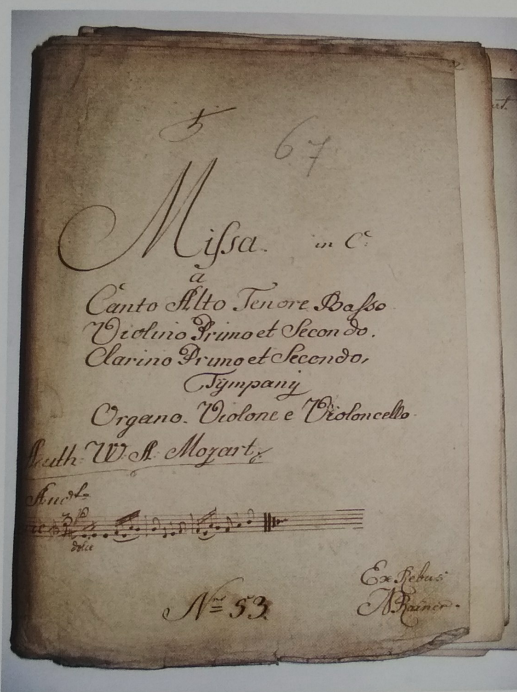 5
67
Missa in C.
à
Canto Alto Tenore Basso
Violino Primo et Secondo.
Clarino Primo et Secondo,
Tympanÿ
Organo. Violone e Violoncello.
Auth: W. A. Mozart
dolce
Nro 53.
Ex Rebus
Rainer.